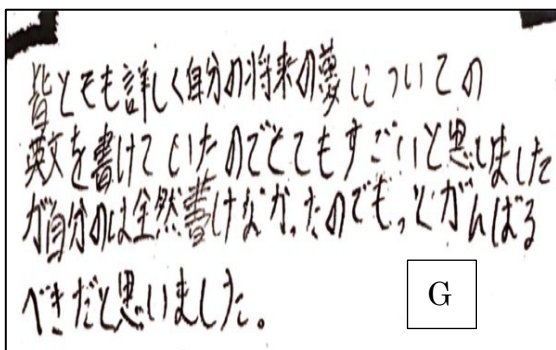 皆とても詳しく自分の将来の夢についての
英文を書けていたのでとてもすごいと思いました
が自分のは全然書けなかったのでもっとがんばる
べきだと思いました。
G